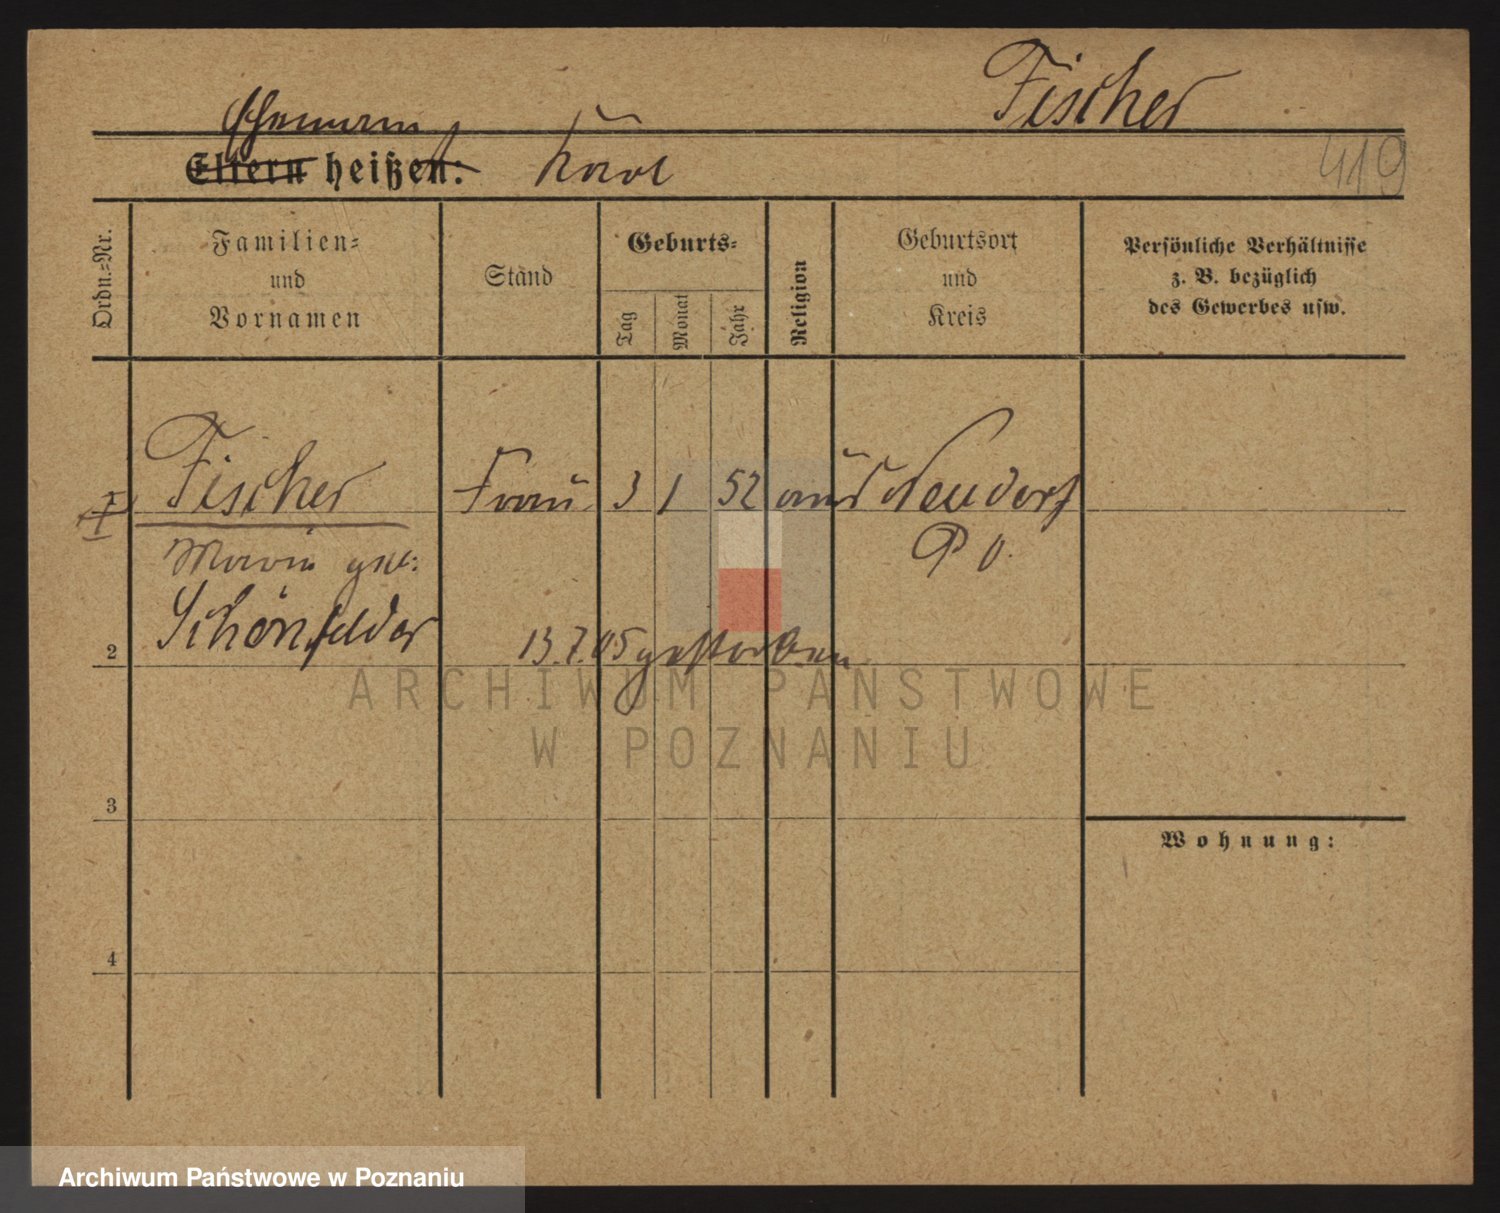 Fischer
Ehemann
Eltern heißen: Karl
419
Ordn.-Nr.
Familien-
und
Vornamen
Stand
Geburts-
Tag
Monat
Jahr
Religion
Geburtsort
und
Kreis
Persönliche Verhältnisse
z. B. bezüglich
des Gewerbes usw.
Fischer Frau 3 1 52 aus Neudorf
Maria geb:
P O.
Schönfelder
13.7.05 gestorben
2
ARCHIWUM PAŃSTWOWE
W POZNANIU
3
Wohnung:
4
Archiwum Państwowe w Poznaniu